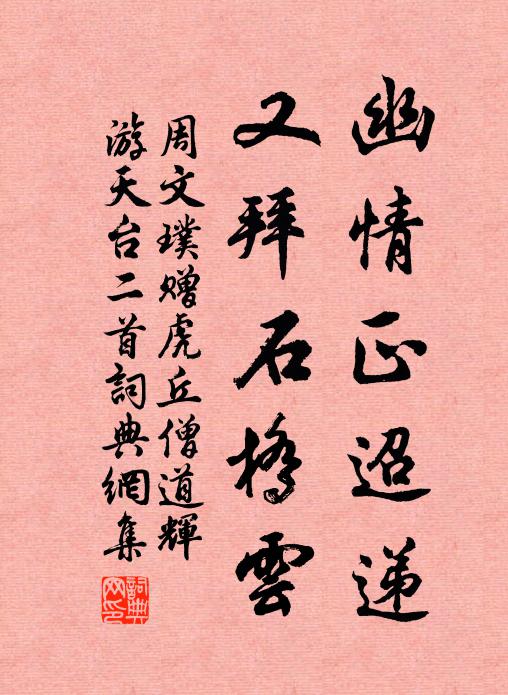 幽情正迢递
又拜石橋雲
周文璞赠虎丘僧道輝
游天台二首詞典網集
詞典网印